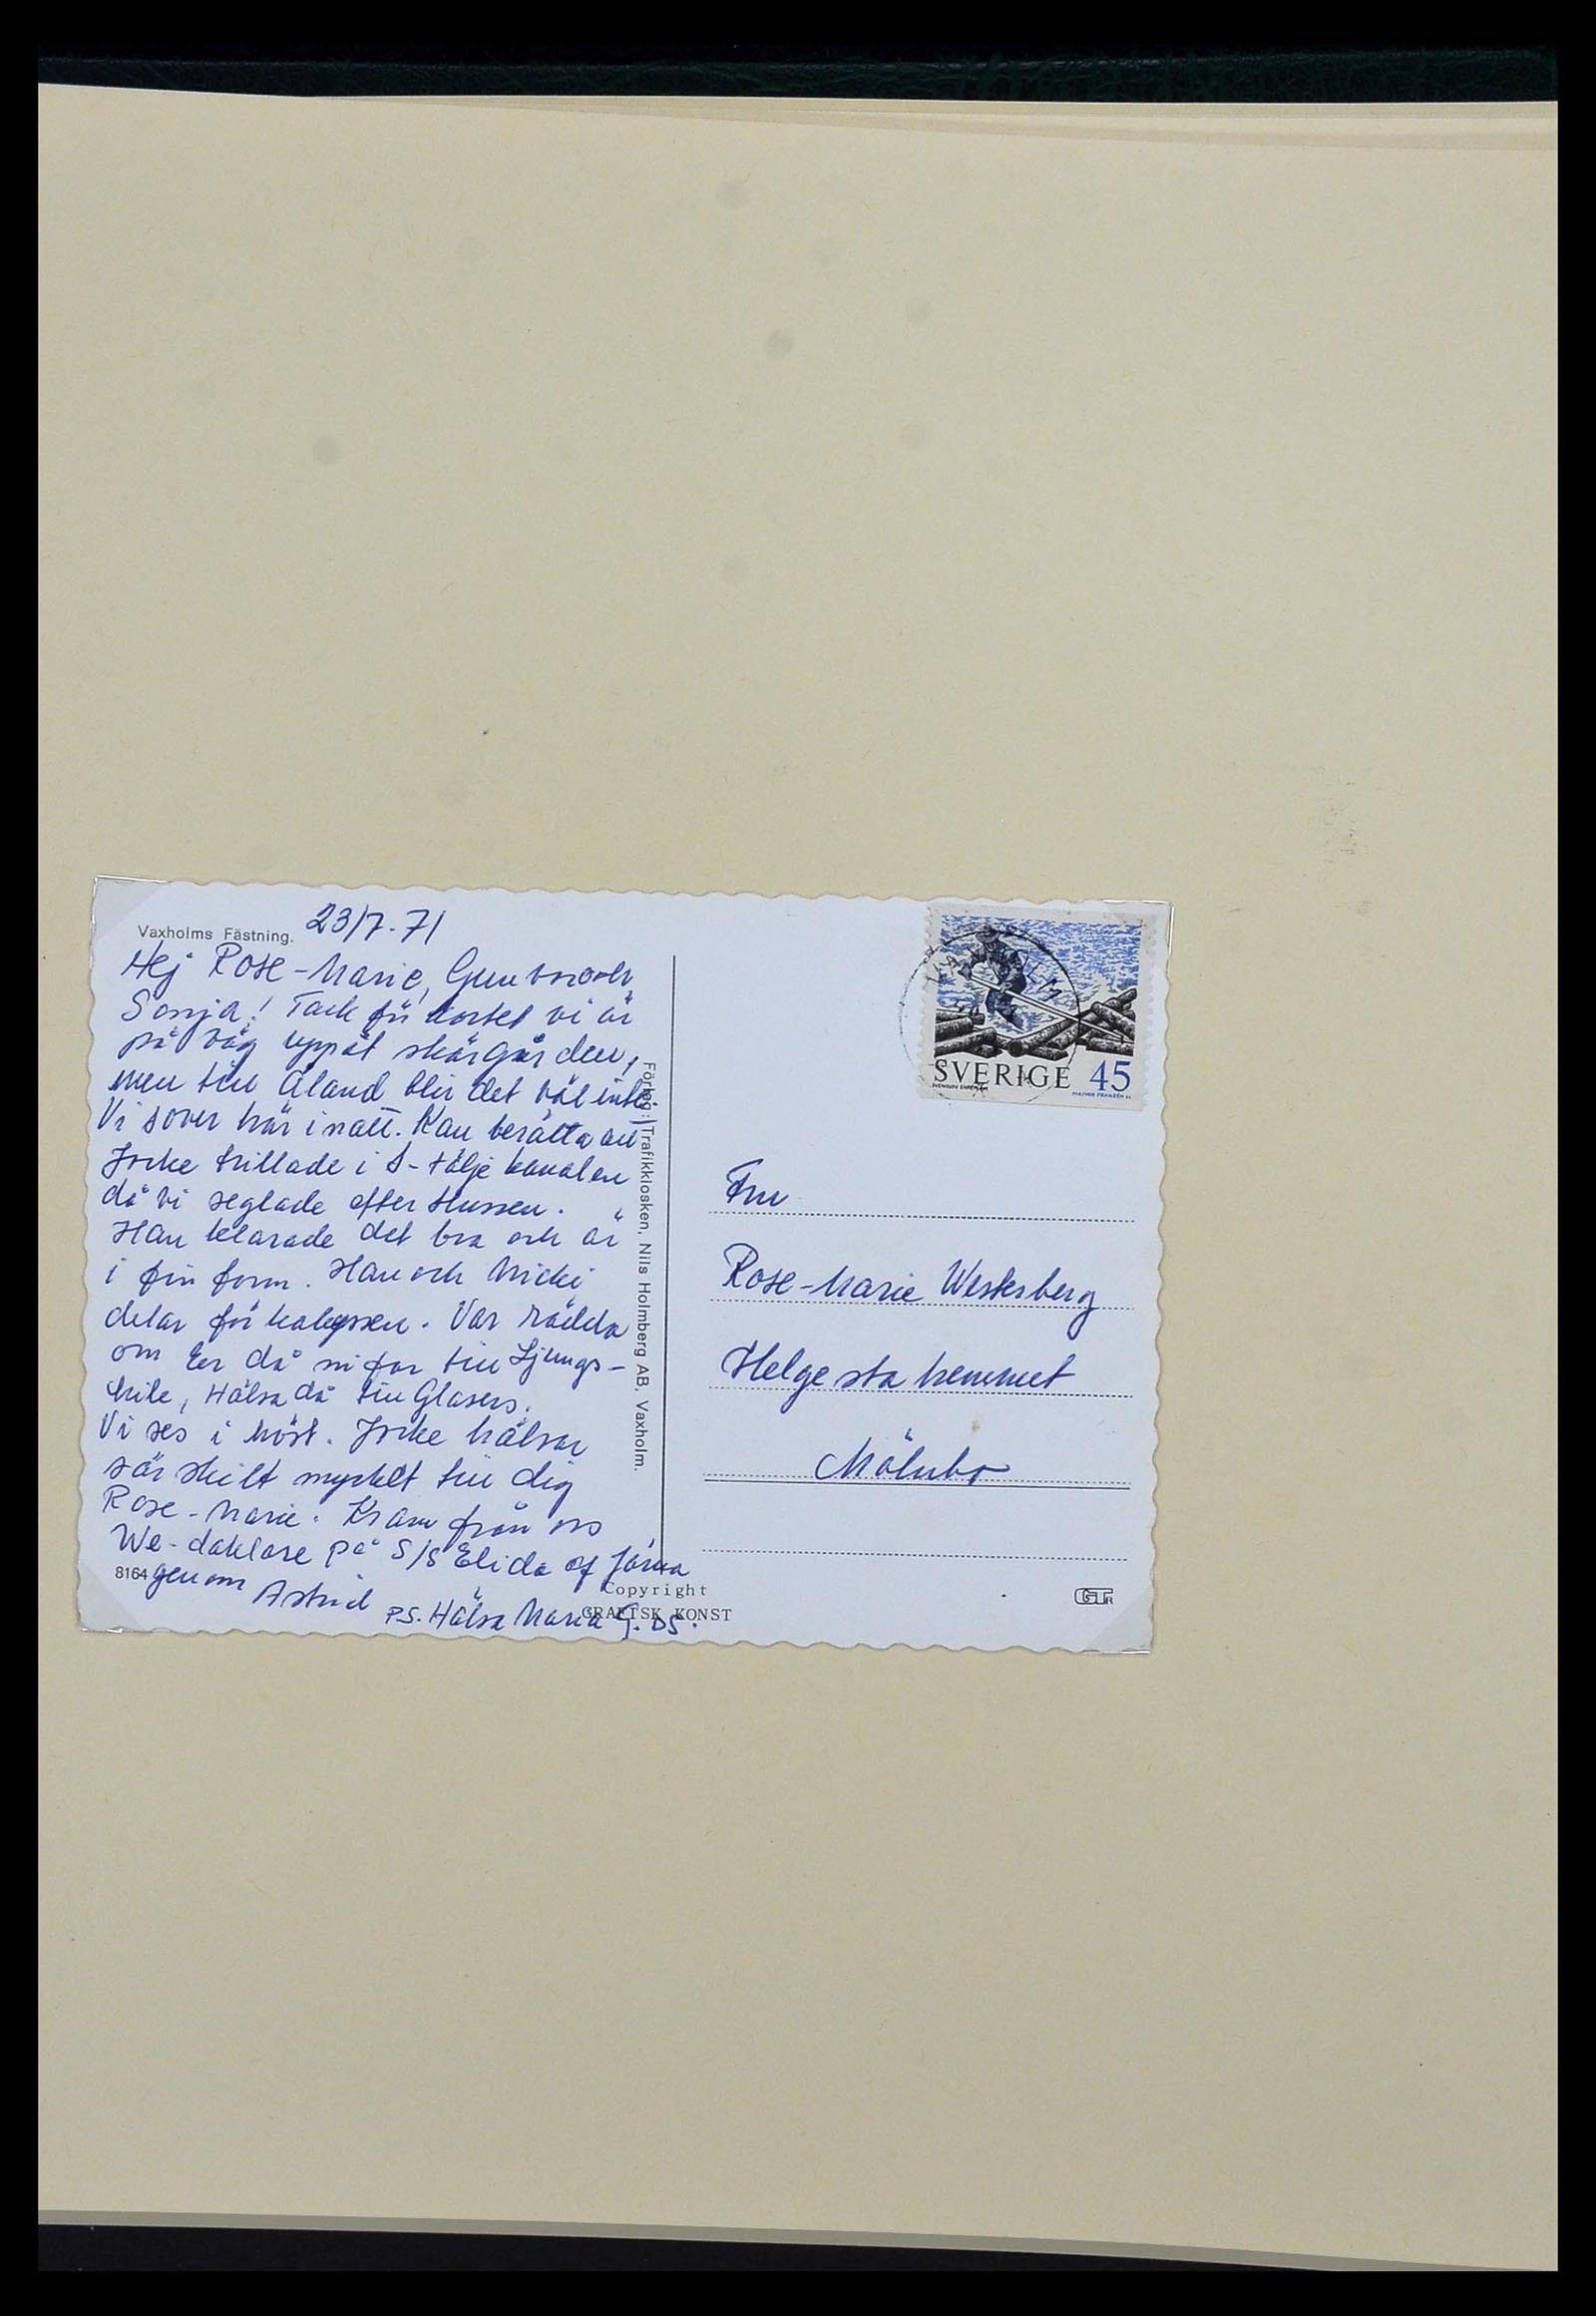 Vaxholms Fästning. 23/7-71
Hej Rose-Marie, Gunvor och
Sonja! Tack för kortet vi är
på väg uppåt skärgården,
men till Åland blir det väl inte.
Vi sover här i natt. Kan berätta att
Jocke trillade i S-tälje kanalen
då vi seglade efter slussen.
Han klarade det bra och är
i fin form. Han och Micki
delar för kabyssen. Var rädda
om Er då ni far till Ljungs-
kile, Hälsa då till Glasers.
Vi ses i höst. Jocke hälsar
särskilt mycket till dig
Rose-Marie. Kram från oss
We-daklare på S/S Elida of Järna
8164 genom Astrid
PS. Hälsa Maria G. DS.
Förlag: Trafikkiosken, Nils Holmberg AB, Vaxholm.
Copyright
GRAFISK KONST
SVERIGE 45
Fru
Rose-Marie Westerberg
Helgesta hemmet
Mölnbo